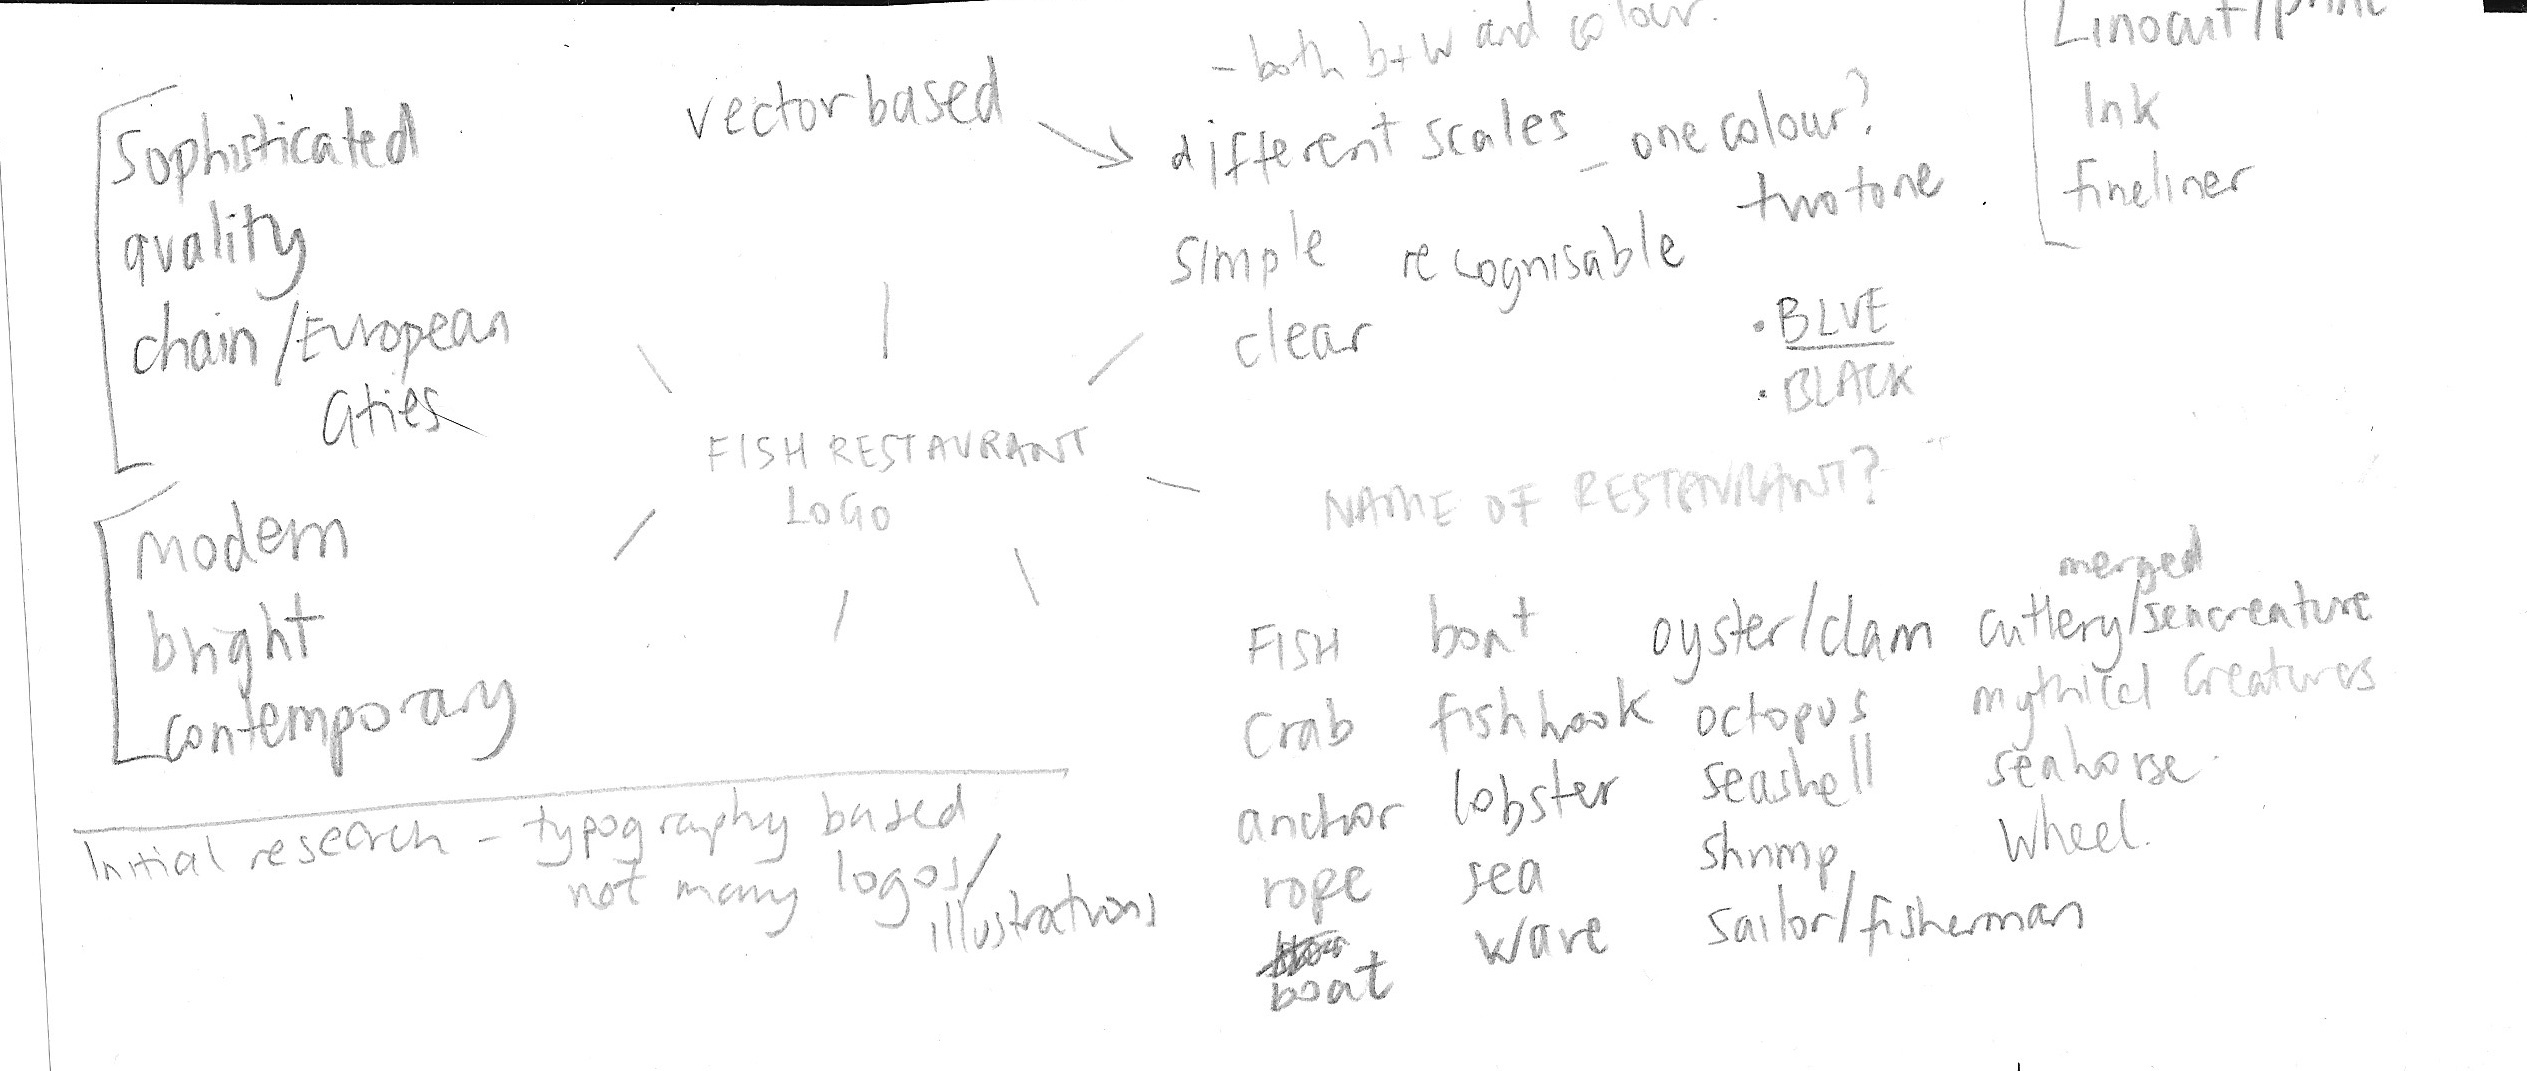 Sophisticated
quality
chain/European
cities
modern
bright
contemporary
Initial research - typography based
not many logos/
illustrations
vector based
FISH RESTAURANT
LOGO
- both b+w and colour.
different scales - one colour?
two tone
simple recognisable
clear
• BLUE
• BLACK
Linocut/print
Ink
fineliner
NAME OF RESTAURANT?
merged
FISH boat oyster/clam cutlery/seacreature
crab fishhook octopus mythical creatures
anchor lobster seashell seahorse
rope sea shrimp wheel.
boat wave sailor/fisherman